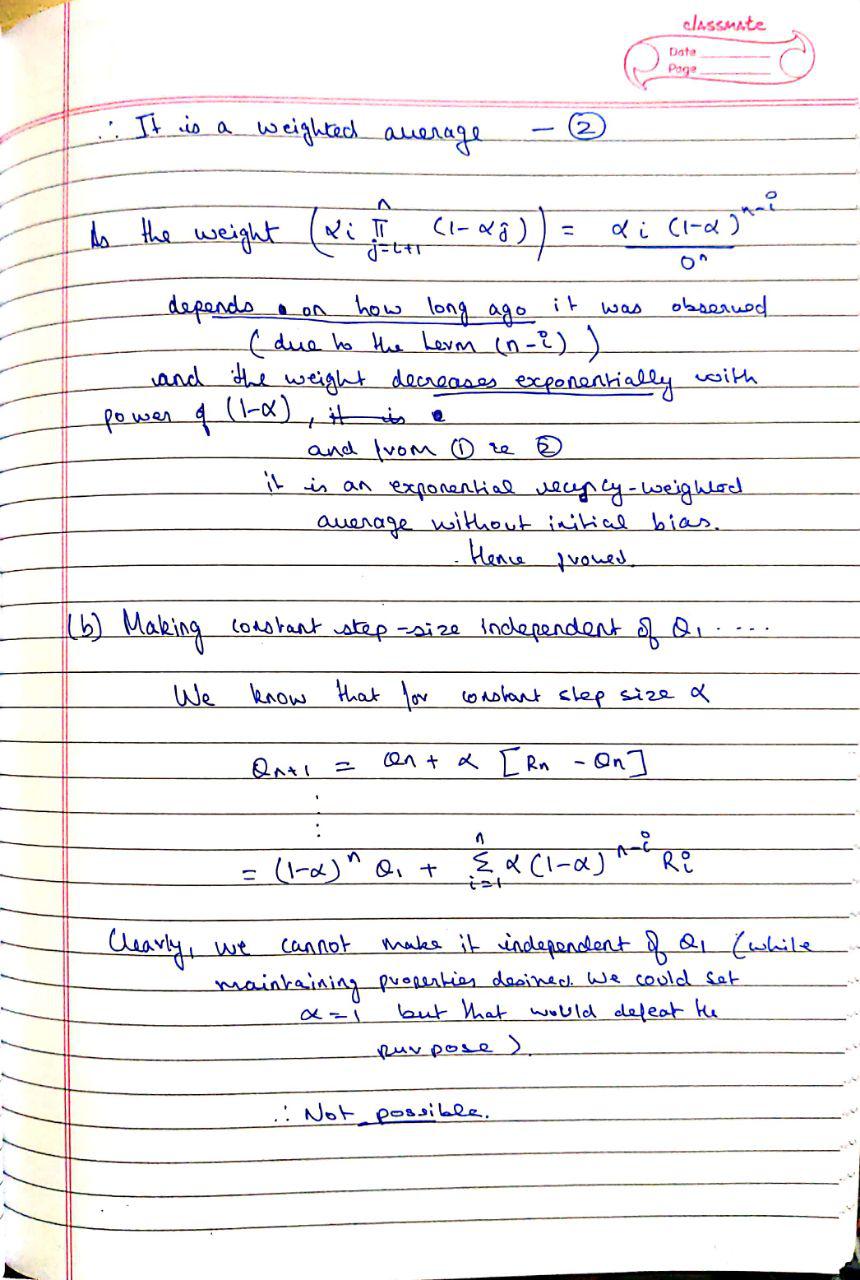 classmate
Date
Page
∴ It is a weighted average — ②
As the weight (αi ∏_{j=i+1}^{n} (1-αj)) = αi (1-α)^{n-i} / O^n
depends on how long ago it was observed
(due to the term (n-i))
and the weight decreases exponentially with
power of (1-α), it is
and from ① & ②
it is an exponential recency-weighted
average without initial bias.
Hence proved.
(b) Making constant step-size independent of Q₁ ....
We know that for constant step size α
Qn+1 = Qn + α [Rn - Qn]
⋮
= (1-α)^n Q₁ + Σ_{i=1}^{n} α (1-α)^{n-i} Ri
Clearly, we cannot make it independent of Q₁ (while
maintaining properties desired. We could set
α = 1 but that would defeat the
purpose).
∴ Not possible.